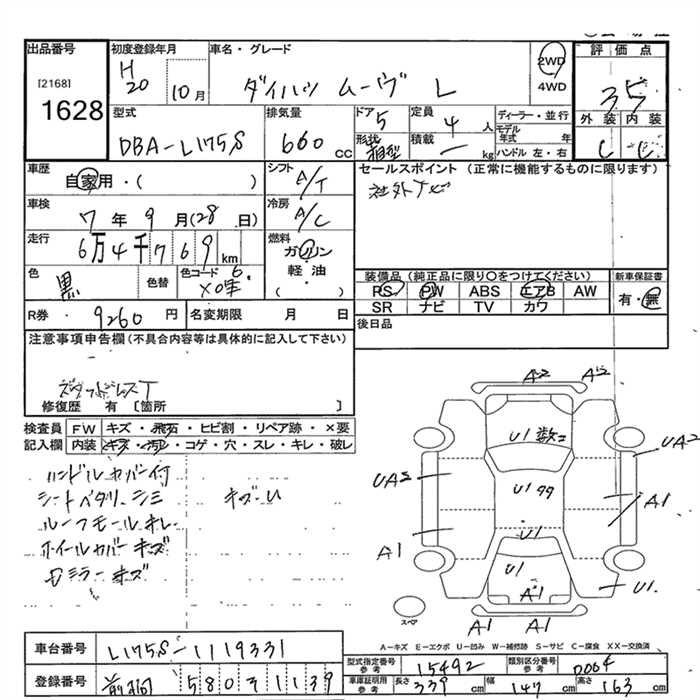 出品番号 初度登録年月 車名・グレード 評価点
[2168] H20 10月 ダイハツ ムーヴ L 2WD 4WD 35
1628
型式 排気量 ドア 定員 ディーラー・並行 外装 内装
DBA-L175S 660cc 5 4人 モデル年式 年 C C
形状 箱型 積載 kg ハンドル 左・右
車歴 自家用・( ) シフト A/T セールスポイント (正常に機能するものに限ります)
社外ナビ
車検 7年9月(28日) 冷房 A/C
走行 6万4千769km 燃料 ガソリン 軽油 ( )
色 黒 色替 色コード X07 装備品 (純正品に限り○をつけてください) 新車保証書
PS PW ABS エアB AW 有・無
SR ナビ TV カワ
R券 9260円 名変期限 月 日 後日品
注意事項申告欄(不具合内容等は具体的に記入して下さい)
スタッドレスT
修復歴 有 [箇所 ]
検査員記入欄 FW キズ・飛石・ヒビ割・リペア跡・×要
内装 キズ・汚れ・コゲ・穴・スレ・キレ・破レ
ハンドルカバー付
シート シミ キズU
ルーフモールキレ
ホイールカバーキズ
ミラーキズ
A2 A2
U1 数コ
UA2
UA2
U1
A1
U1
A1
U1
A1
U1
A1 A1
スペア
A-キズ E-エクボ U-凹み W-補修跡 S-サビ C-腐食 XX-交換済
車台番号 L175S-1119331
型式指定番号 参考 15492 類別区分番号 参考 0004
登録番号 580 1139
車庫証明用 参考 長さ 339cm 幅 147cm 高さ 163cm